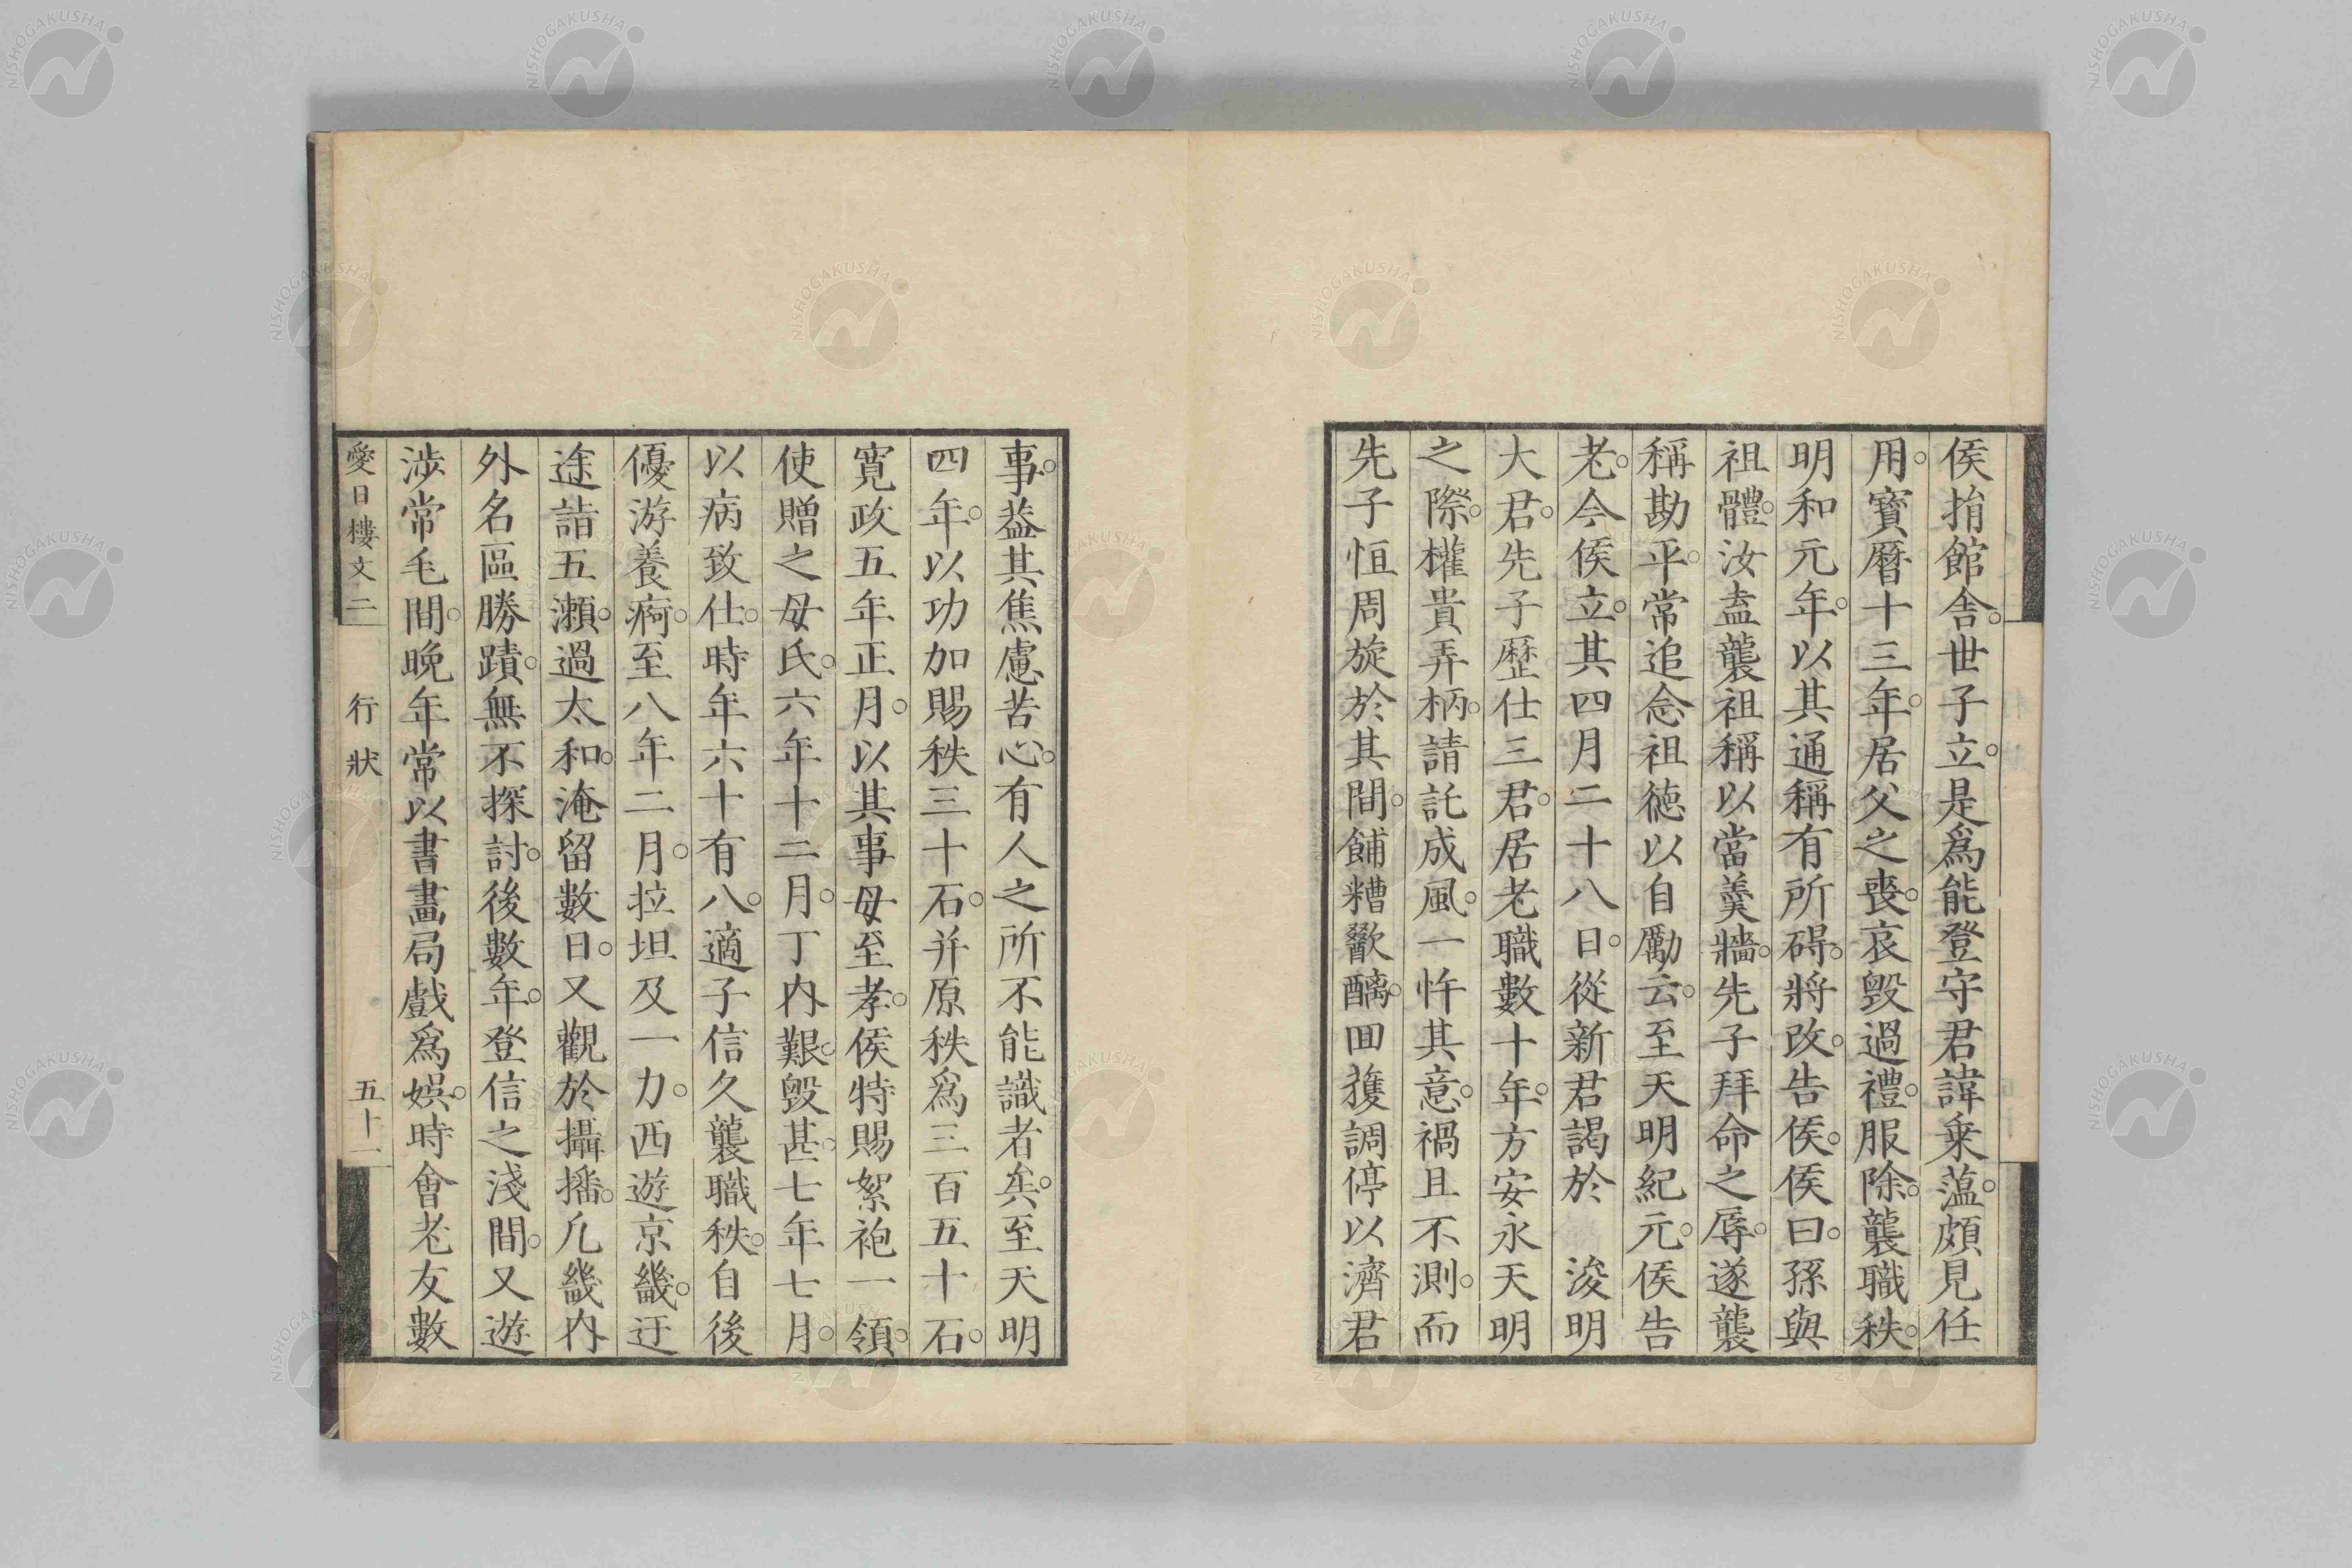 侯捐館舎。世子立。是爲能登守君諱乗薀。頗見任
用。寳暦十三年。居父之喪。哀毀過禮。服除。襲職秩。
明和元年。以其通稱有所碍。將改。告侯。侯曰。孫與
祖體。汝盍襲祖稱以當羹牆。先子拜命之辱。遂襲
稱勘平。常追念祖徳以自勵云。至天明紀元。侯告
老。今侯立。其四月二十八日。從新君謁於　浚明
大君。先子歷仕三君。居老職數十年。方安永天明
之際。權貴弄柄。請託成風。一忤其意。禍且不測。而
先子恒周旋於其間。餔糟歠醨。囬獲調停以濟君
事。葢其焦慮苦心。有人之所不能識者矣。至天明
四年。以功加賜秩三十石。并原秩爲三百五十石。
寛政五年正月。以其事母至孝。侯特賜絮袍一領。
使贈之母氏。六年十二月。丁内艱。毀甚。七年七月。
以病致仕。時年六十有八。適子信久襲職秩。自後
優游養痾。至八年二月。拉坦及一力。西遊京畿。迂
途詣五瀬。過太和。淹留數日。又觀於攝播。凢畿内
外名區勝蹟。無不探討。後數年。登信之淺間。又遊
渉常毛間。晩年常以書畫局戲爲娯。時會老友數
愛日樓文二　行狀　五十二